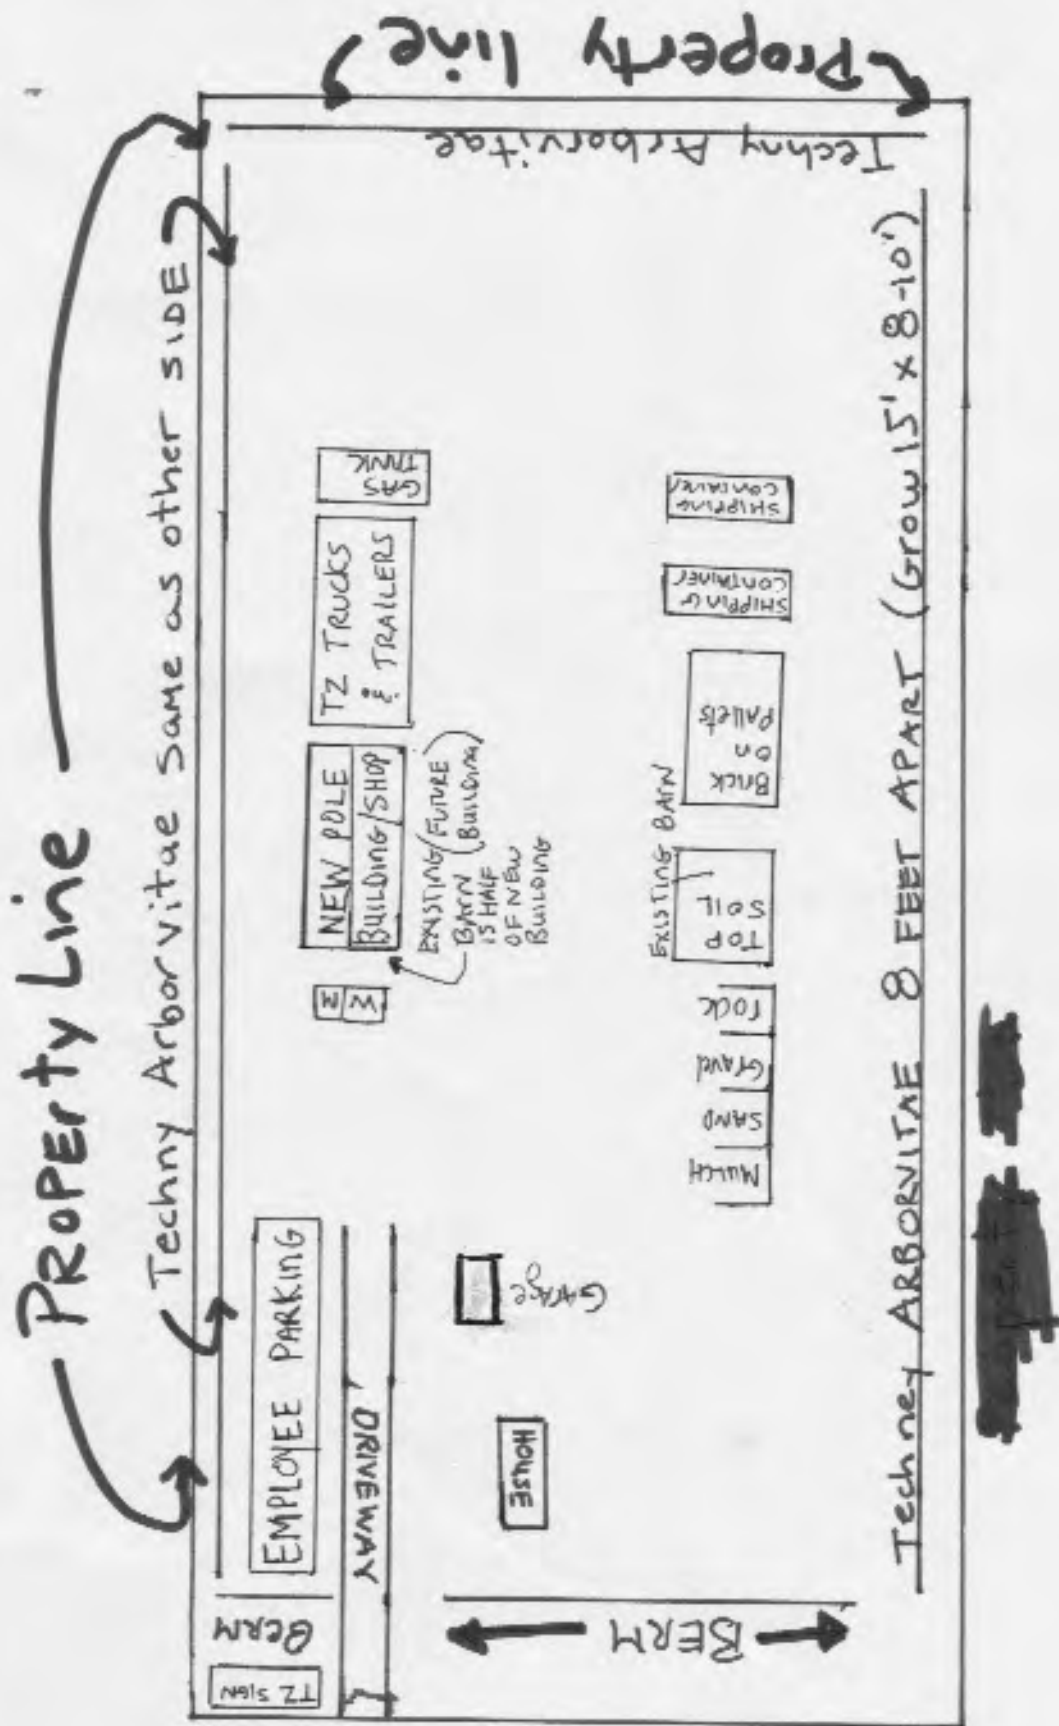 Property Line
Property line
Techny Arborvitae same as other SIDE
Techny Arborvitae
GAS
TANK
TZ TRUCKS
& TRAILERS
NEW POLE
BUILDING/SHOP
EXISTING/FUTURE
BARN (Building)
IS HALF
OF NEW
BUILDING
M
W
EMPLOYEE PARKING
DRIVEWAY
BERM
TZ SIGN
SHIPPING
CONTAINER
SHIPPING
CONTAINER
Brick
on
Pallets
EXISTING BARN
TOP
SOIL
rock
Gravel
SAND
MULCH
GARAGE
HOUSE
BERM
Techney ARBORVITAE 8 FEET APART (Grow 15' x 8-10')